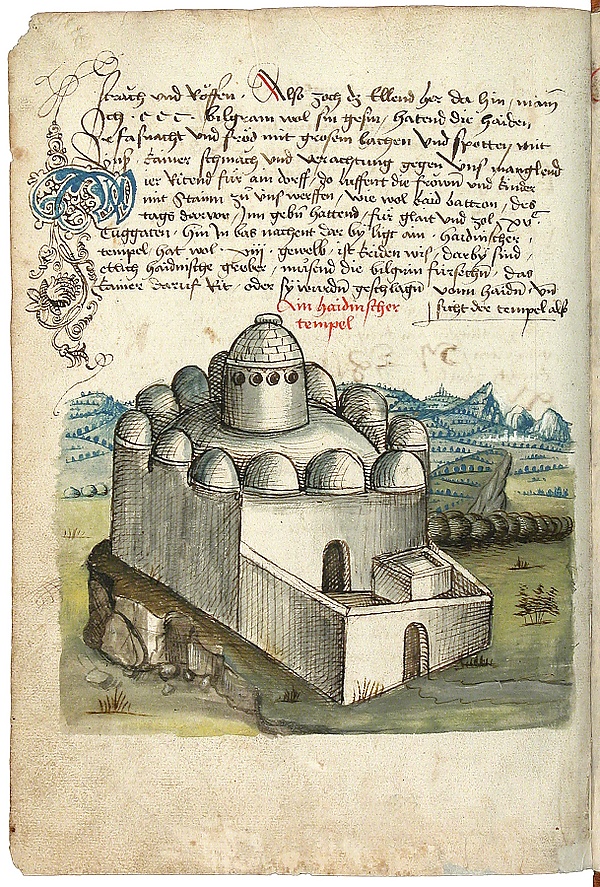 strach und Roffen. Also zoch dz Ellend her da hin, main
ich . C C C . bilgram wol sin gesin, hatend die haiden
fasnacht und fröd mit grosem lachen und spotten, mit
uns kainer schmach und verachtung gegen uns manglend
wir Ritend für ain dorff, do luffent die frowen und kinder
mit Stainn zu uns werffen, wie wol baid battron, des
tags darvor, Inn gebn hattend, für glait und zol, XV
Tuggaten, hin In bas nachent dar by ligt ain, haidnischer,
tempel, hat wol . viiij . gewelb, ist kriden wis, darby sind,
ettlich haidnische greber, miesend die bilgrin fürsechn, das
kainer daruf Rit, oder sy wurdn geschlagn vonn haidn, un
Ain haidnischer
tempel
sicht der tempel also